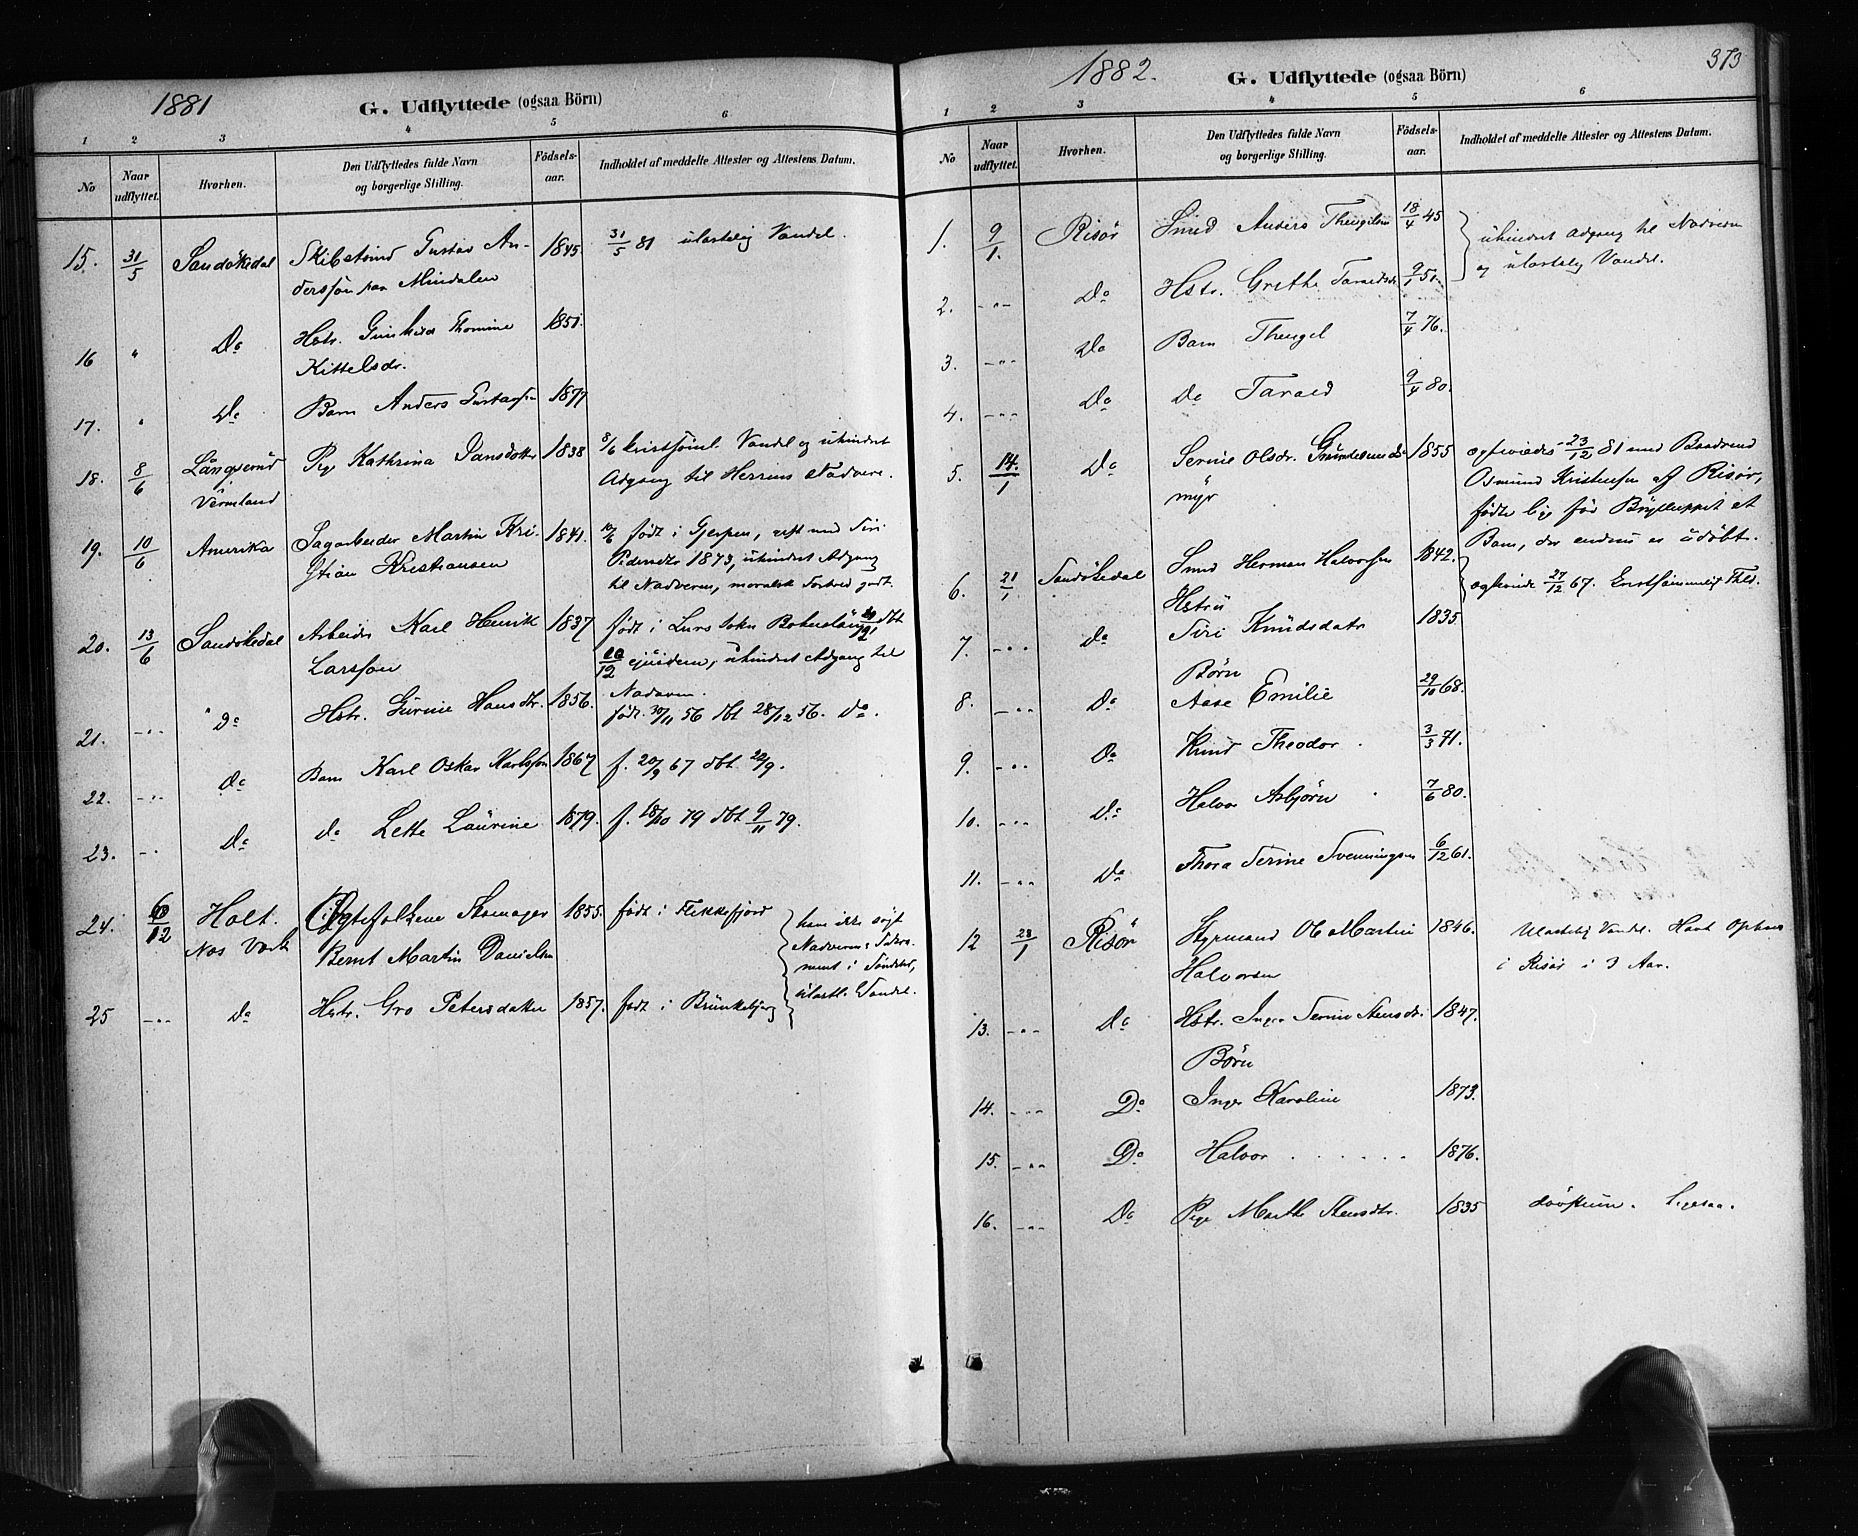 1881
G. Udflyttede (ogsaa Börn)
1 2 3 4 5 6
No
Naar udflyttet.
Hvorhen.
Den Udflyttedes fulde Navn og borgerlige Stilling.
Födsels-aar.
Indholdet af meddelte Attester og Attestens Datum.
15. 31/5 Sandökedal Gustav An- 1845. 31/5 81 ulastelig Vandel.
dersson paa Mindalen
16 " Do Hstr. Gunhild Thomine 1851.
Kittelsdr.
17. " Do Barn Anders Gustavsen 1877
18. 8/6 Långserud Pige Kathrina Jansdotter 1838 8/6 kristföml. Vandel og uhindret
Vermland Adgang til Herrens Nadvere.
19. 10/6 Amerika Sagarbeider Martin Kri- 1841. 10/6 født i Gjerpen, gift med Siri
stian Kristiansen Pedersdtr 1873, uhindret Adgang
til Nadveren, moralsk Forhold godt.
20. 13/6 Sandökedal Arbeider Karl Henrik 1837 født i Lurs Sokn Bohuslän dbt
Larsson 10/12 ejusdem, uhindret Adgang til
Nadveren.
21. -"- Do Hstr. Gurine Hansdtr. 1856. født 30/11 56 dbt 28/12 56. Do.
22. -"- Do Barn Karl Oskar Karlsson 1867 f. 20/9 67 dbt 29/9.
23. -"- Do do Lette Laurine 1879. f. 18/10 79 dbt 9/11 79.
24. 6/12 Holt. Ægtefolkene Skomager 1855. født i Flekkefjord
Nes Værk Bernt Martin Danielsen
har ikke søgt
Nadverens Sakra-
ment i Søndeled,
ulastl. Vandel.
25 -"- do Hstr. Gro Petersdatter 1857. født i Brunkeberg
1882.
G. Udflyttede (ogsaa Börn)
373
1 2 3 4 5 6
No
Naar udflyttet.
Hvorhen.
Den Udflyttedes fulde Navn og borgerlige Stilling.
Födsels-aar.
Indholdet af meddelte Attester og Attestens Datum.
1. 9/1. Risør Smed Anders Thengilsen 18/4 45 uhindret Adgang til Nadveren
og ulastelig Vandel.
2. -"- Do Hstr. Grethe Taraldsdr 9/1 51.
3. -"- Do Barn Thengel 7/4 76.
4. -"- Do Do Tarald 9/4 80.
5. 14./1 Do Serine Olsdr. 1855 23/12 81 med Baadsmd
myr Osmund Kristensen af Risør,
fødte lige før Brylluppet et
Barn, der endnu er udøbt.
6. 21/1 Sandökedal Smed Herman Halvorsen 1842. 27/12 67.
Hstru
7. -"- Do Siri Knudsdatr 1835
Børn
8. -"- Do Aase Emilie 29/10 68.
9. -"- Do Knud Theodor. 3/3 71.
10. -"- Do Halvor Asbjørn. 7/6 80.
11. -"- Do Thora Serine Svenningsen 6/12 61.
12 28/1 Risør Styrmand Ole Martin 1846. Ulastelig Vandel. Havt Ophold
Halvorsen i Risør i 3 Aar.
13. -"- Do Hstr. Inger Serine Stensdr. 1847.
Børn
14. -"- Do Inger Karoline 1873.
15. -"- Do Halvor . . . . . . 1876.
16. -"- Do Pige Marthe Stensdtr. 1835 døvstum. Ligesaa.